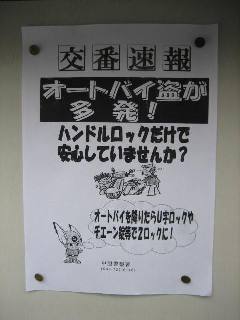 交番速報
オートバイ盗が
多発！
ハンドルロックだけで
安心していませんか？
オートバイを降りたらU字ロックや
チエーン錠等で2ロックに！